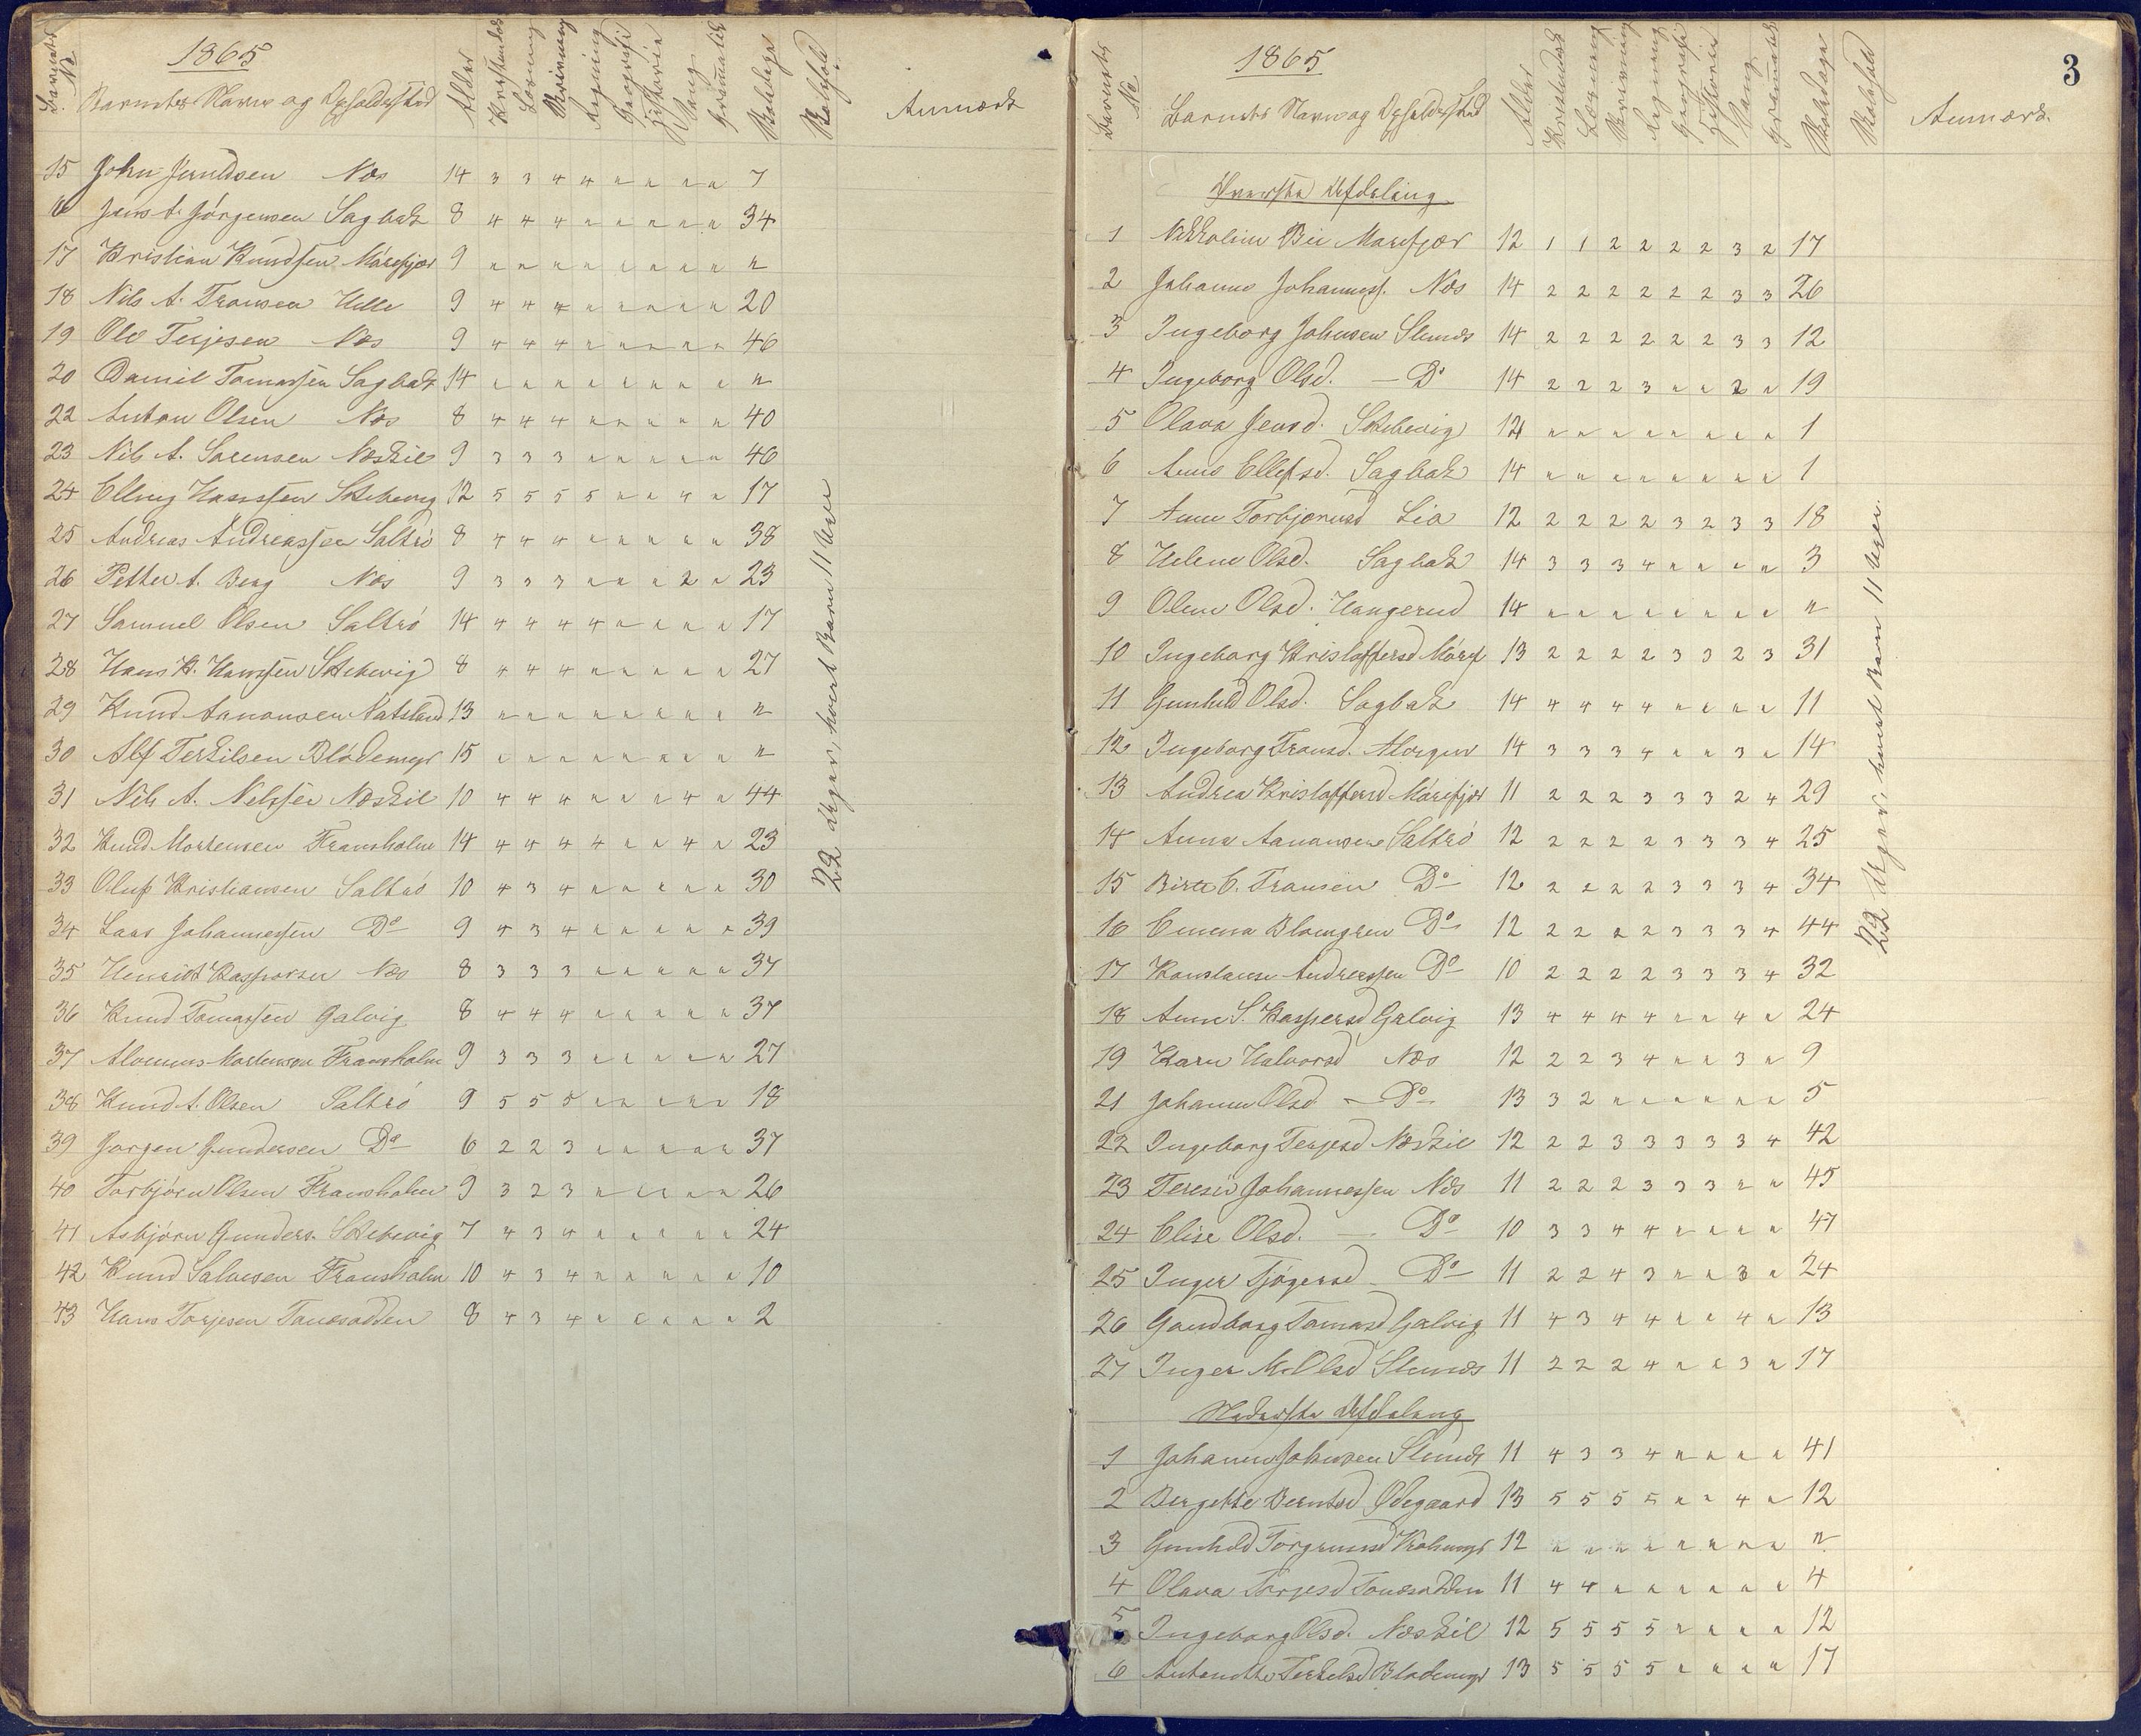 1865
Barnets No
Barnets Navn og Opholdssted
Alder
Kristendom
Læsning
Skrivning
Regning
Geografi
Historie
Sang
Grammatik
Skoledage
Skolehold
Anmærk
15 John Knudsen Næs 14 3 3 4 4 " " " " 7
16 Jens A. Jörgensen Sagbak 8 4 4 4 " " " " " 34
17 Kristian Knudsen Marefjær 9 " " " " " " " " "
18 Nils A. Fransen Helle 9 4 4 4 " " " " " 20
19 Ole Terjesen Næs 9 4 4 4 " " " " " 46
20 Daniel Tomassen Sagbak 14 " " " " " " " " "
22 Anton Olsen Næs 8 4 4 4 " " " " " 40
23 Nils A. Sørensen Næskil 9 3 3 3 " " " " " 46
24 Elling Hanssen Stebevig 12 5 5 5 5 " " 4 " 17
25 Andreas Andreassen Saltrö 8 4 4 4 " " " " " 38
26 Petter A. Berg Næs 9 3 3 3 " " " 2 " 23
27 Samuel Olsen Saltrö 14 4 4 4 4 " " " " 17
28 Hans K. Hanssen Stebevig 8 4 4 4 " " " " " 27
29 Knud Aanonsen Natsland 13 " " " " " " " " "
30 Alf Terkilsen Blödemyr 15 " " " " " " " " "
31 Nils A. Nelssen Næskil 10 4 4 4 " " " 4 " 44
32 Knud Mortensen Fransholm 14 4 4 4 4 " " 4 " 23
33 Oluf Kristiansen Saltrö 10 4 3 4 " " " " " 30
34 Lars Johannessen Do 9 4 3 4 " " " " " 39
35 Henrik Kaspersen Næs 8 3 3 3 " " " " " 37
36 Knud Tomassen Galvig 8 4 4 4 " " " " " 37
37 Mortensen Fransholm 9 3 3 3 " " " " " 27
38 Knud A. Olsen Saltrö 9 5 5 5 " " " " " 18
39 Jørgen Gundersen Do 6 2 2 3 " " " " " 37
40 Torbjörn Olsen Fransholm 9 3 2 3 " " " " " 26
41 Asbjörn Gunders. Stebevig 7 4 3 4 " " " " " 24
42 Knud Salvesen Fransholm 10 4 3 4 " " " " " 10
43 Hans Torjesen Tangsodden 8 4 3 4 " " " " " 2
22 Uger, hvert Barn 11 Uger
3
1865
Barnets No
Barnets Navn og Opholdssted
Alder
Kristendom
Læsning
Skrivning
Regning
Geografi
Historie
Sang
Grammatik
Skoledage
Skolehold
Anmærk.
Øverste Afdeling
1 Nikoline Bie Marefjær 12 1 1 2 2 2 2 3 2 17
2 Johanne Johanness. Næs 14 2 2 2 2 2 2 3 3 26
3 Ingeborg Johnsen Slenæs 14 2 2 2 2 2 2 3 3 12
4 Ingeborg Olsd. — Do 14 2 2 2 3 " " 2 " 19
5 Olava Jensd. Stebevig 14 " " " " " " " " 1
6 Anne Ellefsd. Sagbak 14 " " " " " " " " 1
7 Anne Torbjørnsd Lia 12 2 2 2 2 3 2 3 3 18
8 Helene Olsd. Sagbak 14 3 3 3 4 " " " " 3
9 Oline Olsd. Hangerud 14 " " " " " " " " "
10 Ingeborg Kristoffersd Maref 13 2 2 2 2 3 3 2 3 31
11 Gunhild Olsd. Sagbak 14 4 4 4 4 " " " " 11
12 Ingeborg Fransd. 14 3 3 3 4 " " 3 " 14
13 Andrea Kristoffersd Marefjær 11 2 2 2 3 3 3 2 4 29
14 Anna Aanonsen Saltrö 12 2 2 2 2 3 3 3 4 25
15 Birte C. Fransen Do 12 2 2 2 2 3 3 3 4 34
16 Emma Blomgren Do 12 2 2 2 2 3 3 3 4 44
17 Konstanse Andreassen Do 10 2 2 2 2 3 3 3 4 32
18 Anne S. Kaspersd Galvig 13 4 4 4 4 " " 4 " 24
19 Karn Halvorsd Næs 12 2 2 3 4 " " 3 " 9
21 Johanne Olsd — Do 13 3 2 " " " " " " 5
22 Ingeborg Terjesd Næskil 12 2 2 3 3 3 3 3 4 42
23 Terese Johannessen Næs 11 2 2 2 3 3 3 " " 45
24 Elise Olsd. — Do 10 3 3 4 4 " " " " 47
25 Inger Tjøgersd — Do 11 2 2 4 3 " " 3 " 24
26 Gundborg Tomasd Galvig 11 4 3 4 4 " " 4 " 13
27 Inger M. Olsd Slenæs 11 2 2 2 4 " " 3 " 17
Nederste Afdeling
1 Johanne Johnsen Slenæs 11 4 3 3 4 " " " " 41
2 Bergette Berntsd Ødegaard 13 5 5 5 5 " " 4 " 12
3 Gunhild Torgrimsd 12 " " " " " " " " "
4 Olava Torjesd Tangsodden 11 4 4 " " " " " " 4
5 Ingeborg Olsd. Næskil 12 5 5 5 5 " " " " 12
6 Antonette Terkelsd Blødemyr 13 5 5 5 5 " " " " 17
22 Uger, hvert Barn 11 Uger.